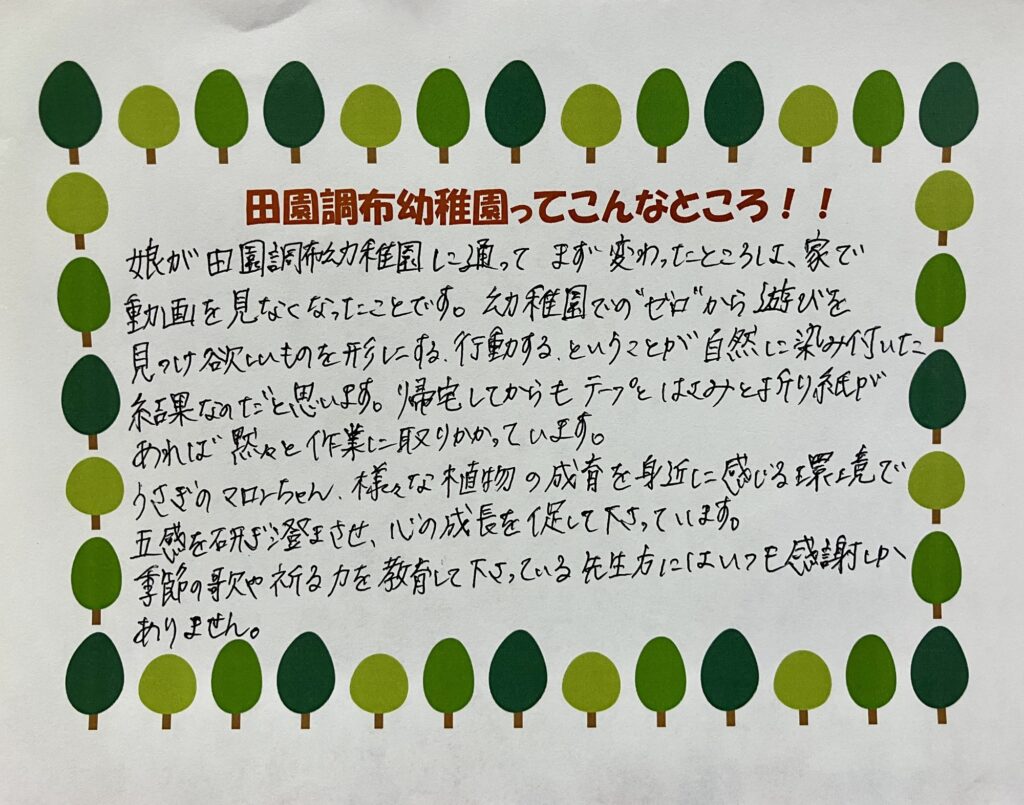 田園調布幼稚園ってこんなところ！！
娘が田園調布幼稚園に通って まず変わったところは、家で
動画を見なくなったことです。幼稚園での"ゼロ"から遊びを
見つけ欲しいものを形にする、行動する、ということが自然に染み付いた
結果なのだと思います。帰宅してからもテープとはさみと折り紙が
あれば黙々と作業に取りかかっています。
うさぎのマロンちゃん、様々な植物の成育を身近に感じる環境で
五感を研ぎ澄まさせ、心の成長を促して下さっています。
季節の歌や祈る力を教育して下さっている先生方にはいつも感謝しか
ありません。